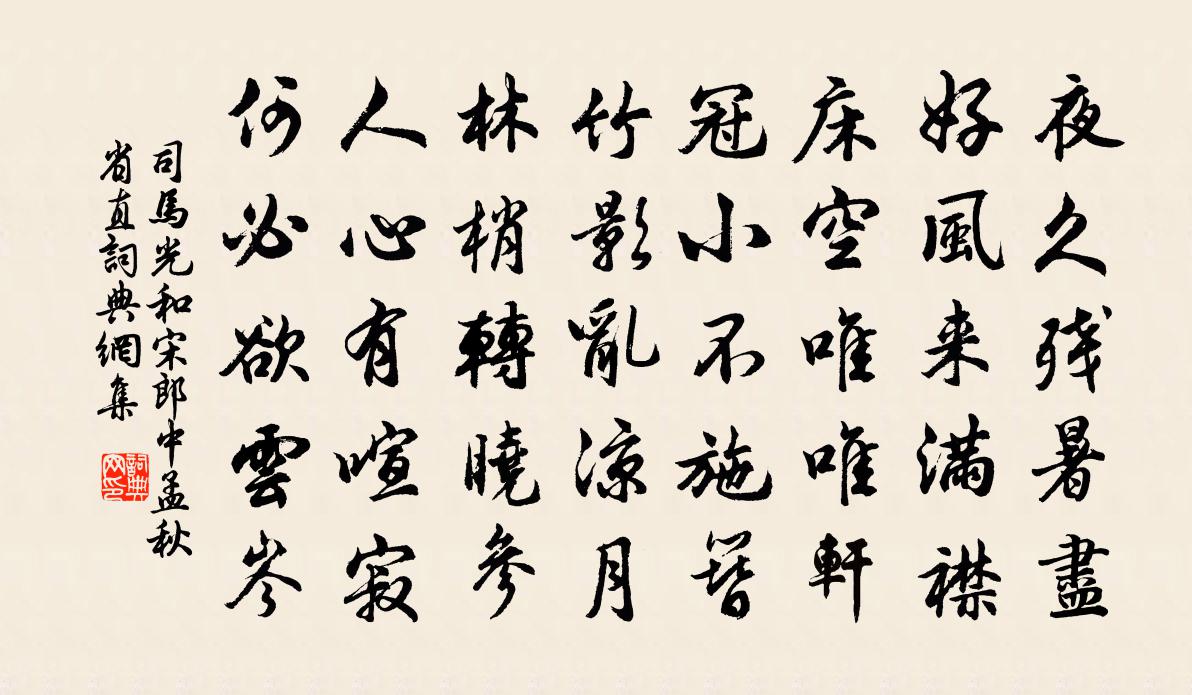 夜久残暑盡
好風来滿襟
床空唯唯軒
冠小不施簪
竹影亂涼月
林梢轉曉參
人心有喧寂
何必欲雲岑
司馬光和宋郎中孟秋
省直詞典網集
詞典网印